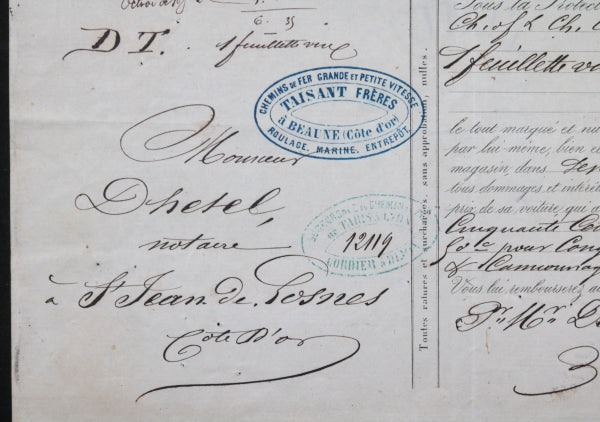 6. 35
D T. 1 feuillette vin
CHEMINS DE FER GRANDE ET PETITE VITESSE
TAISANT FRÈRES
à BEAUNE (Côte d'or)
ROULAGE, MARINE, ENTREPÔT.
Monsieur
Dhetel,
notaire
à St Jean de Losnes
Côte D'or
DE PARIS A LYON
12119
CORDIER A DIJON
Toutes ratures et surcharges, sans approbation, nulles.
Sous la Protec
Ch. of L Ch.
1 feuillette vin
le tout marqué et nu
par lui même, bien c
magasin, dans
tous dommages et intérêt
prix de sa voiture, qui a
Cinquante Cen
pour Cong
& Camionnag
Vous lui rembourserez au
Pr. Mr. D
3